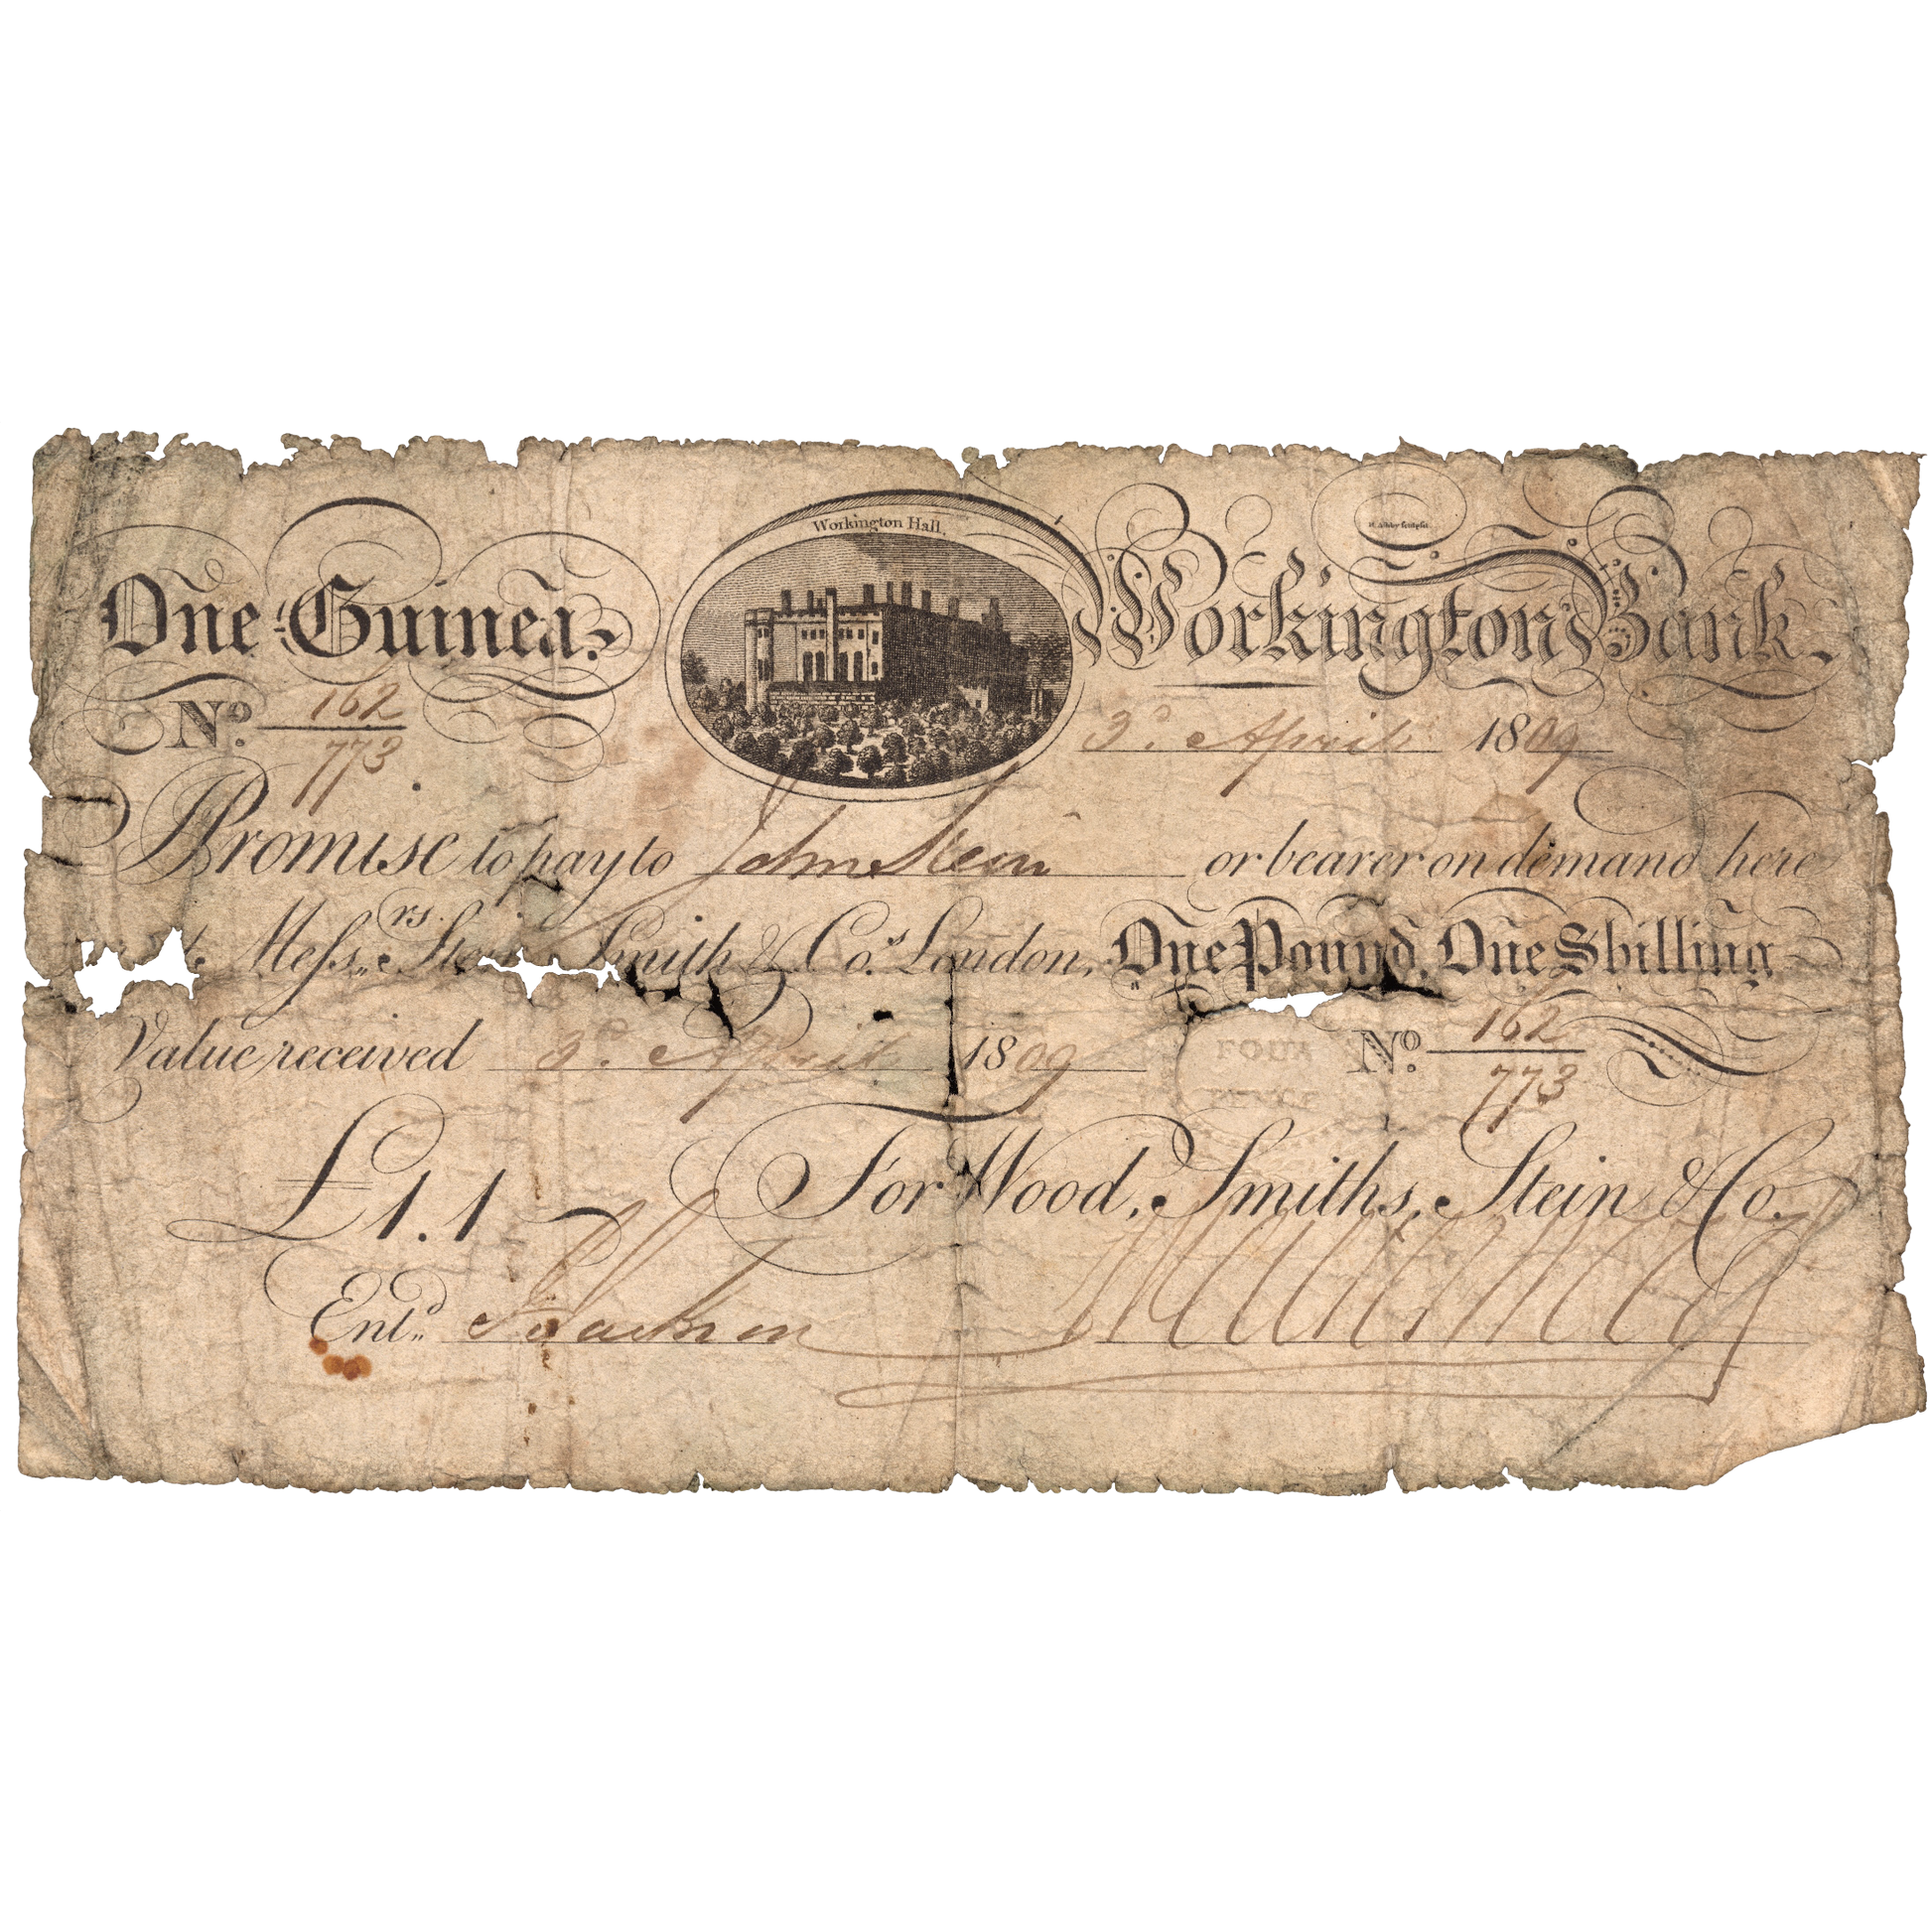 Workington Hall.
H. Ashby sculpsit
One Guinea. Workington Bank.
Nº 162/773 3d. April 1809
Promise to pay to John Stein or bearer on demand here
Messrs. Stein Smith & Co.s London, One Pound, One Shilling
Value received 3d. April 1809 Nº 162/773
FOUR
PENCE
£1.1 For Wood, Smiths, Stein & Co.
Entd. Jackson